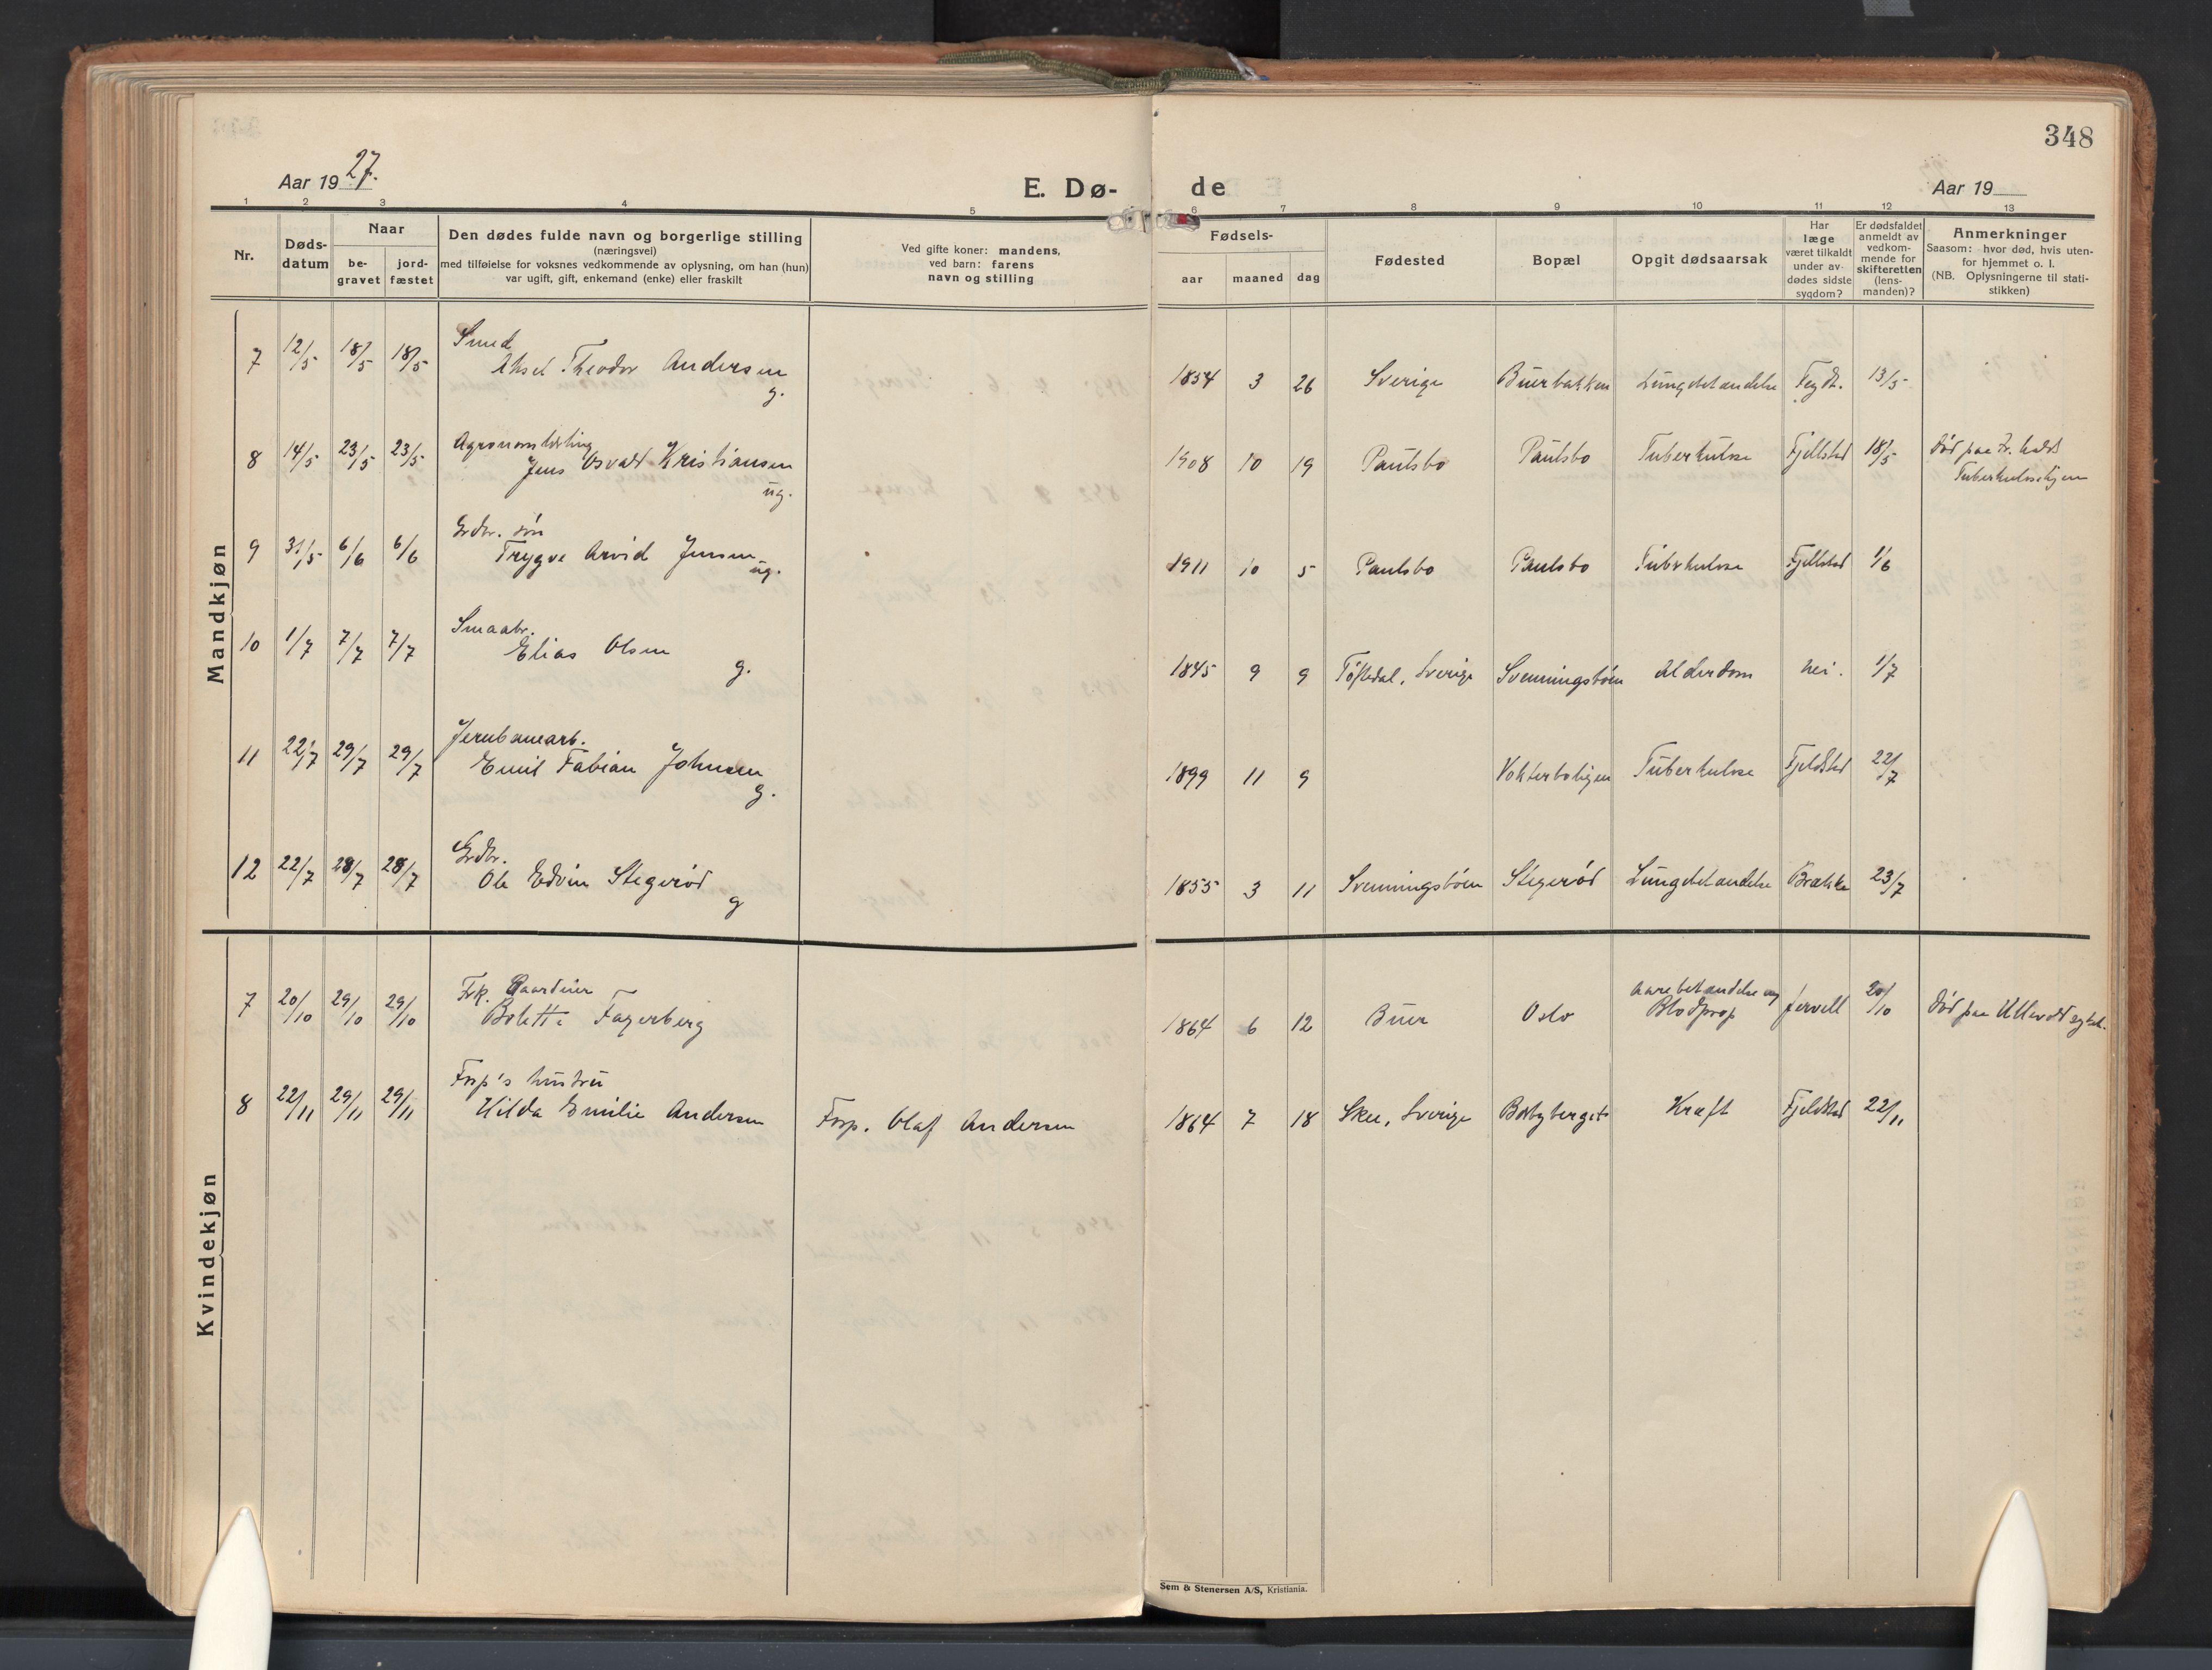 348
Aar 1927.
E. Dø-
de
Aar 19
1 2 3 4 5 6 7 8 9 10 11 12 13
Nr.
Døds-
datum
Naar
be-
gravet
jord-
fæstet
Den dødes fulde navn og borgerlige stilling
(næringsvei)
med tilføielse for voksnes vedkommende av oplysning, om han (hun)
var ugift, gift, enkemand (enke) eller fraskilt
Ved gifte koner: mandens,
ved barn: farens
navn og stilling
Fødsels-
aar maaned dag
Fødested
Bopæl
Opgit dødsaarsak
Har
læge
været tilkaldt
under av-
dødes sidste
sygdom?
Er dødsfaldet
anmeldt av
vedkom-
mende for
skifteretten
(lens-
manden)?
Anmerkninger
Saasom: hvor død, hvis uten-
for hjemmet o. l.
(NB. Oplysningerne til stati-
stikken)
Mandkjøn
Smed
7 12/5 18/5 18/5 Aksel Theodor Andersen 1854 3 26 Sverige Buerbakken Lungebetændelse 13/5
g.
Agronomlærling
8 14/5 23/5 23/5 Jens Osvald Kristiansen 1908 10 19 Paulsbo Paulsbo Tuberkulose Fjellstad 18/5 Død paa Fr.halds
ug. Tuberkulosehjem
Grdbr. søn
9 31/5 6/6 6/6 Trygve Arvid Jensen 1911 10 5 Paulsbo Paulsbo Tuberkulose Fjellstad 1/6
ug.
Smaabr.
10 1/7 7/7 7/7 Elias Olsen 1845 9 9 Töftedal, Sverige Svenningsbøen Alderdom nei. 1/7
g.
Jernbanearb.
11 22/7 29/7 29/7 Emil Fabian Johnsen 1899 11 9 Vokterboligen Tuberkulose Fjeldstad 22/7
g.
Grdbr.
12 22/7 28/7 28/7 Ole Edvin Stegerød 1855 3 11 Svenningsbøen Stegerød Lungebetændelse Brække 23/7
g
Kvindekjøn
Frk. Gaardeier Aarebetændelse og
7 20/10 29/10 29/10 Bolette Fagerberg 1864 6 12 Buer Oslo Blodprop Jervell 20/10 Død paa Ullevold sykeh.
Forp's hustru
8 22/11 29/11 29/11 Hilda Emilie Andersen Forp. Olaf Andersen 1864 7 18 Skee, Sverige Kræft Fjeldstad 22/11
Sem & Stenersen A/S, Kristiania.